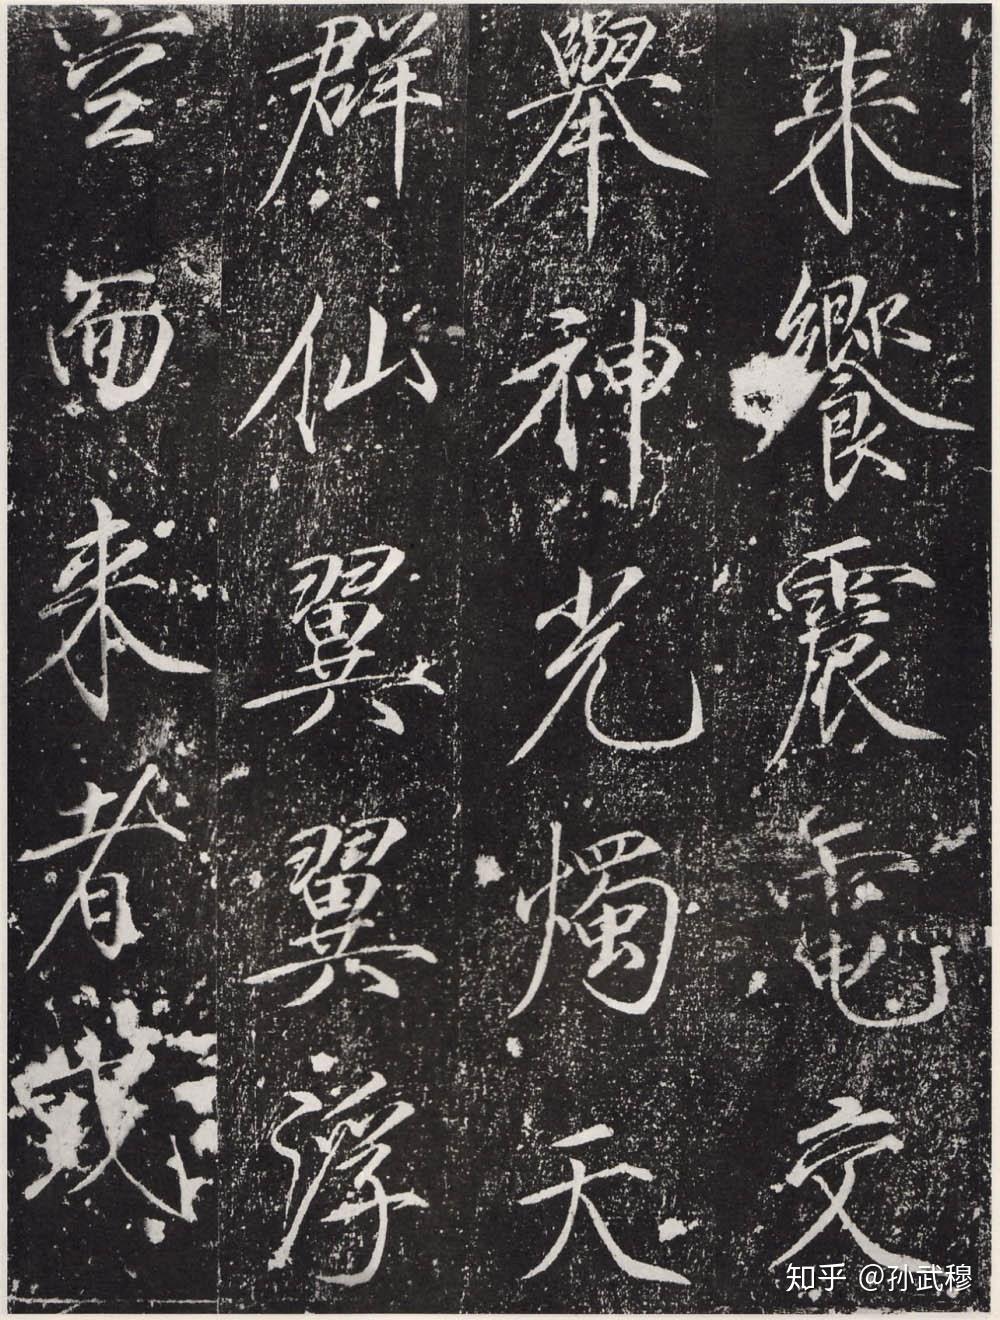 来饗震電交
舉神光燭天
群仙翼翼浮
空而来者
知乎 @孙武穆